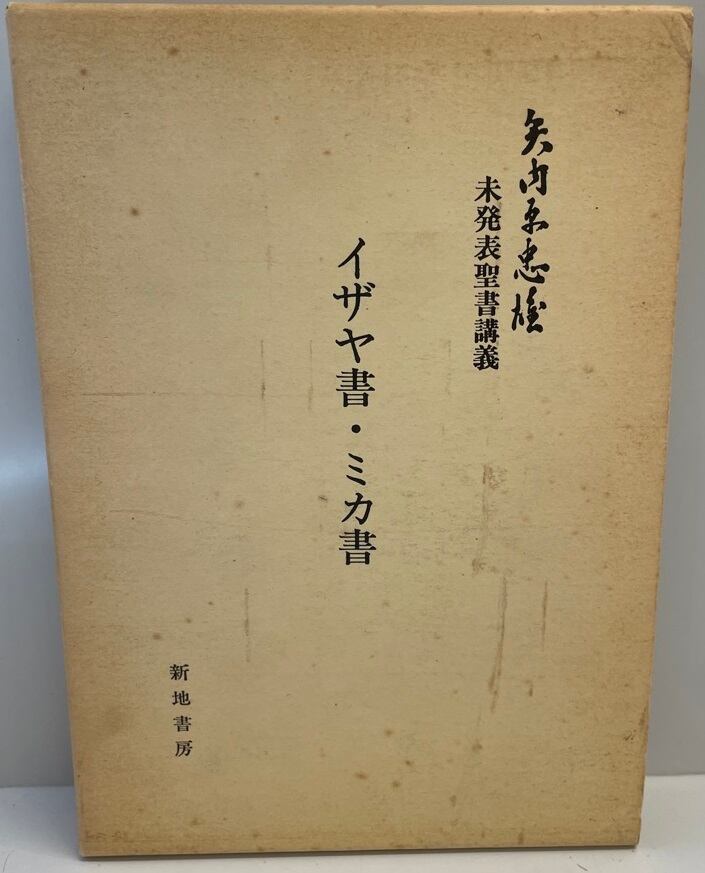 矢内原忠雄
未発表聖書講義
イザヤ書・ミカ書
新地書房